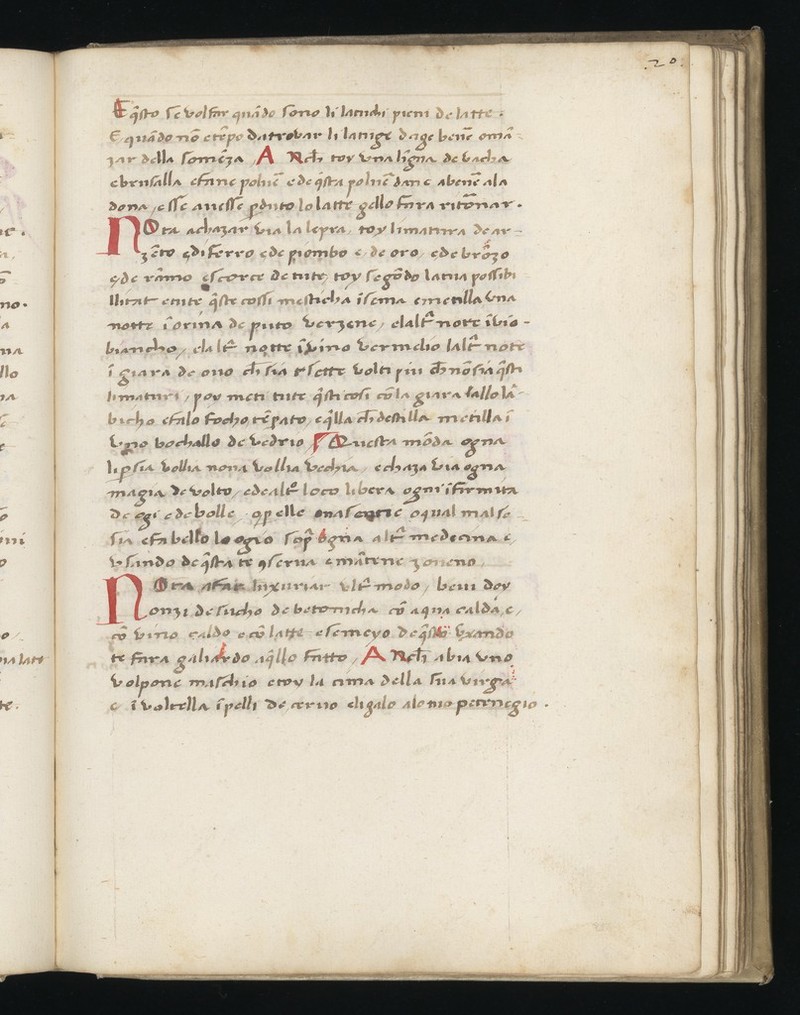 .20.
E q̄sto se vol far quãdo sono li latuchi pieni de latte.
E quãdo nõ e tẽpo da trovar li latuge dage bene omã
zar della somẽza, A Nch toy una lĩgua de vacha
e brusalla e fane polvẽ e de q̄sta polvẽ dan e a bevẽ ala
dona, esse avesse p̱duto lo latte gello fara ritõnar.
NOta a chazar via la lepra, toy limatura de ar-
zẽto e di ferro e de piombo e, de oro, e de brõzo
e de ramo e scorce de tute, toy segõdo la tua possibi
llitat e tute q̄ste cossi mesticha ĩsema e metilla una
notte ĩ orina de puto verzene, e laltr̃ note ĩ vio-
biancho, e laltr̃ notte ĩ vino vermelio laltr̃ note
ĩ giara de ovo ch̃ sia tr̃ sette volti piu ch̃ nõ sia q̄sti
limaturi, poy meti tute q̄sti cosi cõ la giara sallo lã-
bicho e falo focho tẽpato, e q̄lla ch̃ destilla metilla ĩ
uno bochallo de vedrio, Questa mõda ogna
lip̱sia vollia nova vollia vechia, e chaza via ogna
magia de volto, e de altr̃ loco libera ogni ĩfirmita
de ogi e de bolle, o p̱ elle nascentie o qual mal se
sia e fa bello lo ogio sop̱ ogna altr̃ medecina e,
usando de q̄sta te 9serva e mãtene zoveno,
NOta a far luxuriar ultr̃ modo, bevi doy
onzi de sucho de betonicha cõ aqua calda, e,
cõ vino caldo o cõ latte e semeyo de q̄sto uxando
te fara galiardo a q̄llo fatto, A Nch̃ abia uno
volpone maschio e toy la cima della sua virga
e ĩvoltella ĩ pelli de cervo e ligalo alo tuo petenegio.